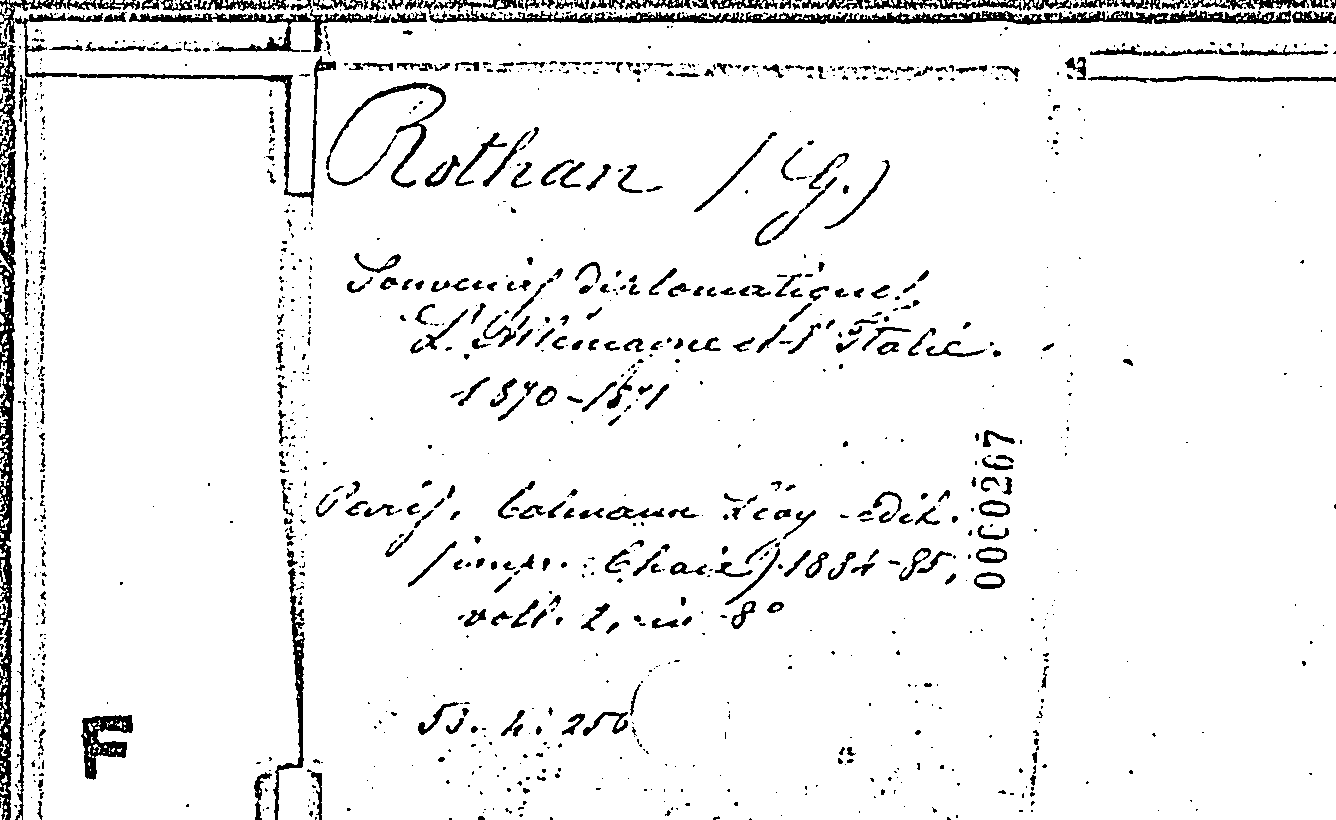 Rothan (G.)
Souvenirs diplomatiques
L'Allemagne et l'Italie.
1870-1871
Paris, Calmann Lévy édit.
(impr. Chaix) 1884-85,
voll. 2, in 8°
53. 4. 250
0000267
F